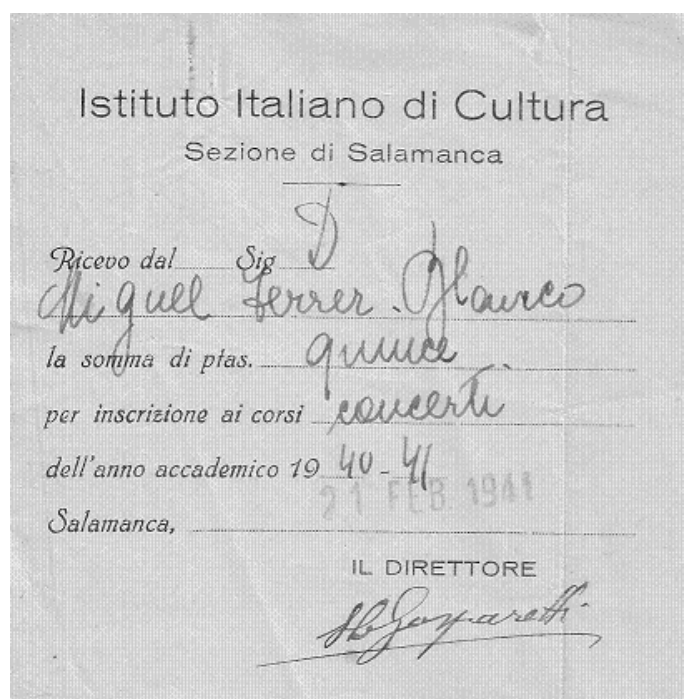 Istituto Italiano di Cultura
Sezione di Salamanca
Ricevo dal Sig D
Miguel Ferrer Blanco
la somma di ptas. quince
per inscrizione ai corsi concerti
dell'anno accademico 19 40-41
21 FEB. 1941
Salamanca,
IL DIRETTORE
Gasparetti